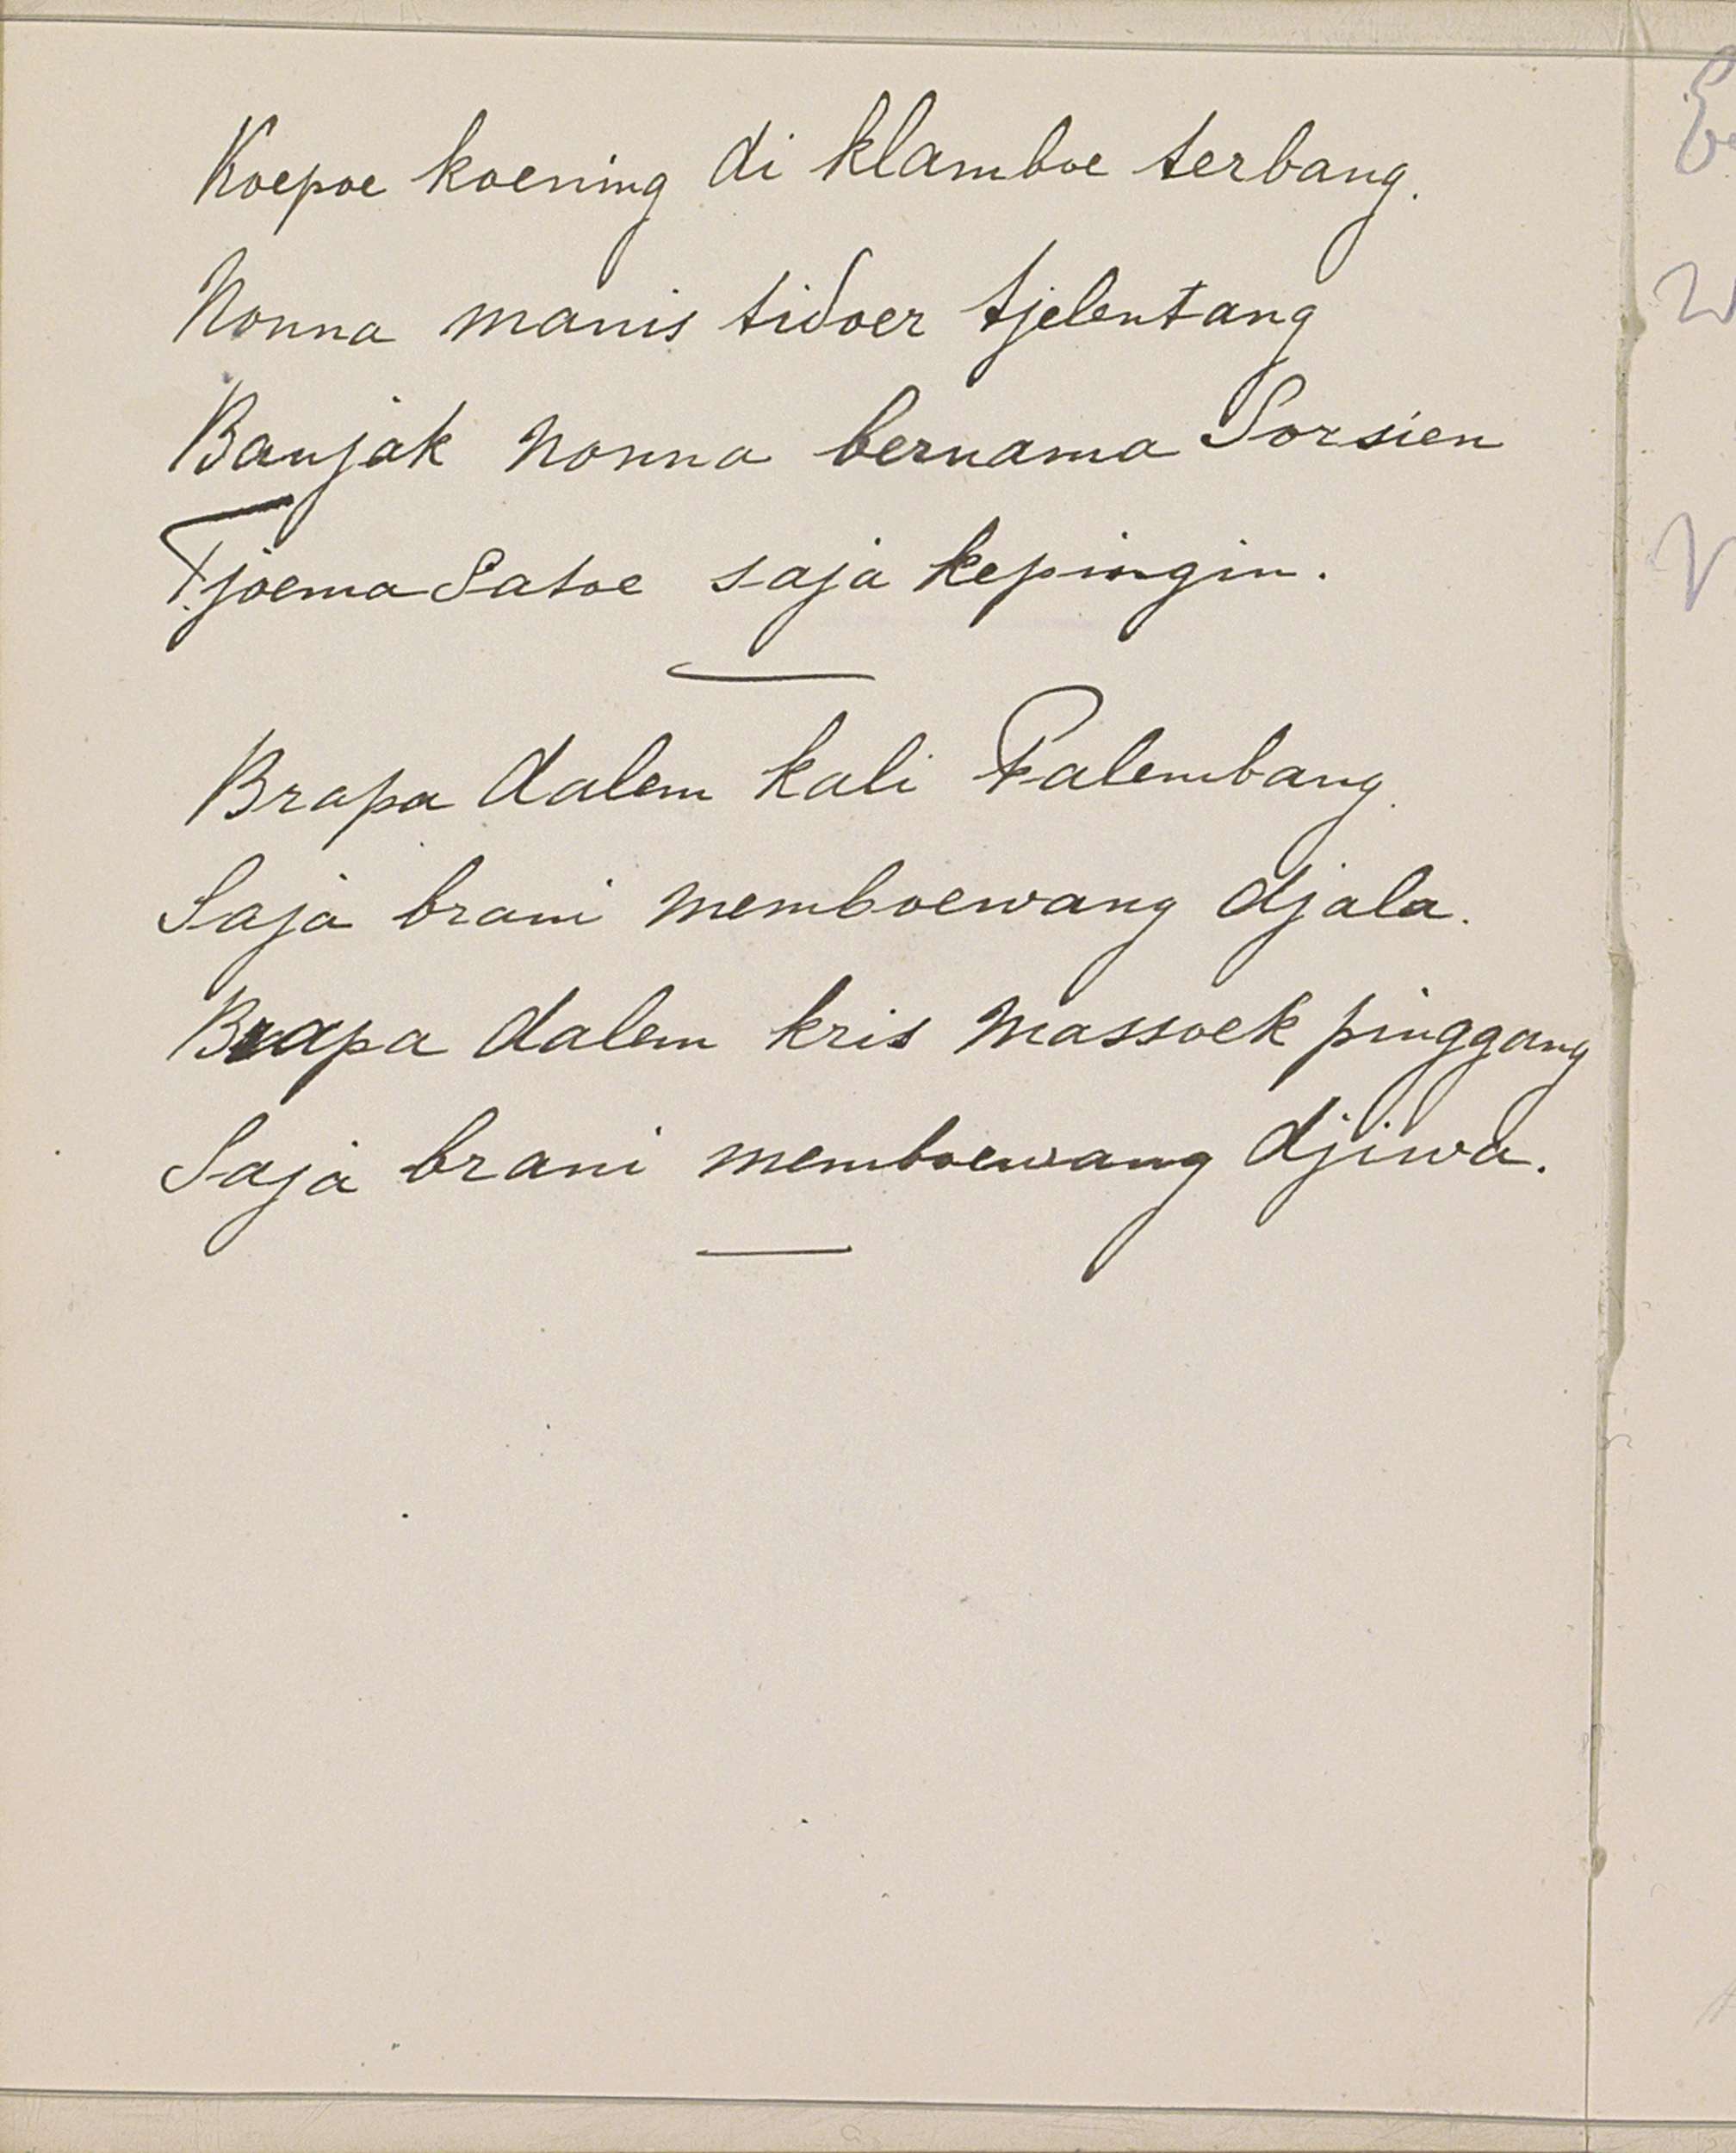 Koepoe koening di klamboe terbang.
Nonna manis tidoer tjelentang
Banjak nonna bernama Sorsien
Tjoema satoe saja kepingin.
Brapa dalem kali Palembang.
Saja brani memboewang djala.
Brapa dalem kris massoek pinggang
Saja brani memboewang djiwa.